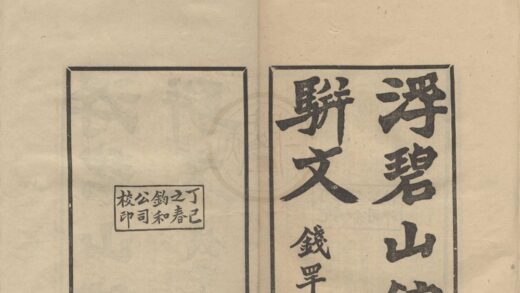 浮碧山
騈文
錢罕
丁巳
之春
鈞和
公司
校印